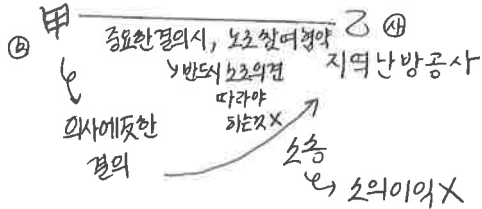 甲 乙 ㉳
중요한 결의시, 노조참여협약
지역난방공사
↘반드시 노조의견
따라야
하는것 X
의사에 또한
결의
소송
↳ 소의이익 X